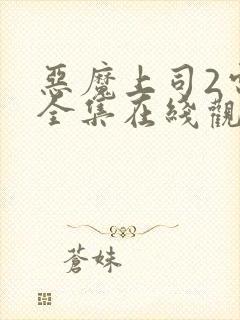 惡魔上司2
全集在綫觀
蒼妹